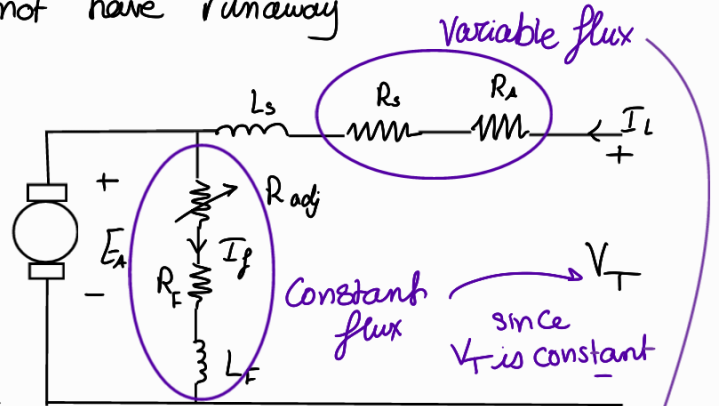 not have runaway
Variable flux
Ls
Rs
RA
IL
+
+
EA
−
Radj
If
RF
LF
Constant
flux
VT
since
VT is constant